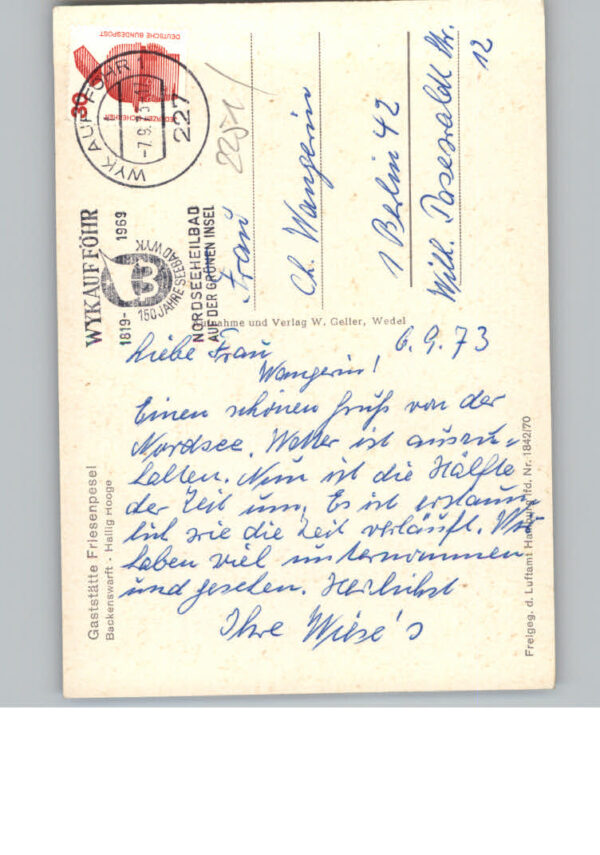 DEUTSCHE BUNDESPOST
30
JEDERZEIT SICHERHEIT
WYK AUF FÖHR 1
-7.9.73
227
WYK AUF FÖHR
1819-1969
150 JAHRE SEEBAD WYK
NORDSEEHEILBAD
AUF DER GRÜNEN INSEL
Frau
Ch. Wangerin
1 Berlin 42
Wilh. Pasewaldt Str.
12
Aufnahme und Verlag W. Geller, Wedel
Liebe Frau 6.9.73
Wangerin!
Einen schönen Gruß von der
Nordsee. Wetter ist auszu-
halten. Nun ist die Hälfte
der Zeit um. Es ist erstaun-
lich wie die Zeit verläuft. Wir
haben viel unternommen
und gesehen. Herzlichst
Ihre Wiese's
Gaststätte Friesenpesel
Backenswarft · Hallig Hooge
Freigeg. d. Luftamt Hamburg lfd. Nr. 1842/70